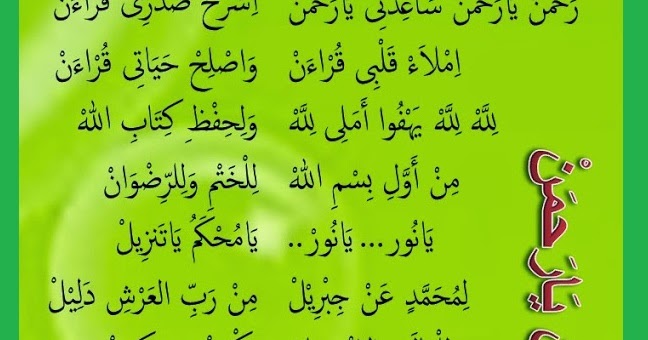 رَحْمٰن يَارَحْمٰن سَاعِدْنِى يَارَحْمٰن اِشْرَحْ صَدْرِى قُرْاءَنْ
اِمْلَاءْ قَلْبِى قُرْاءَنْ وَاصْلِحْ حَيَاتِى قُرْاءَنْ
لِلَّهْ لِلَّهْ يَهْفُوا أَمَلِى لِلَّهْ وَلِحِفْظِ كِتَابِ اللهْ
مِنْ أَوَّلِ بِسْمِ اللهْ لِلْخَتْمِ وَلِلرِّضْوَانْ
يَانُور ... يَانُورْ .. يَامُحْكَمُ يَاتَنزِيلْ
لِمُحَمَّدٍ عَنْ جِبْرِيْلْ مِنْ رَبِّ العَرْشِ دَلِيْلْ
يَارَحمَنْ